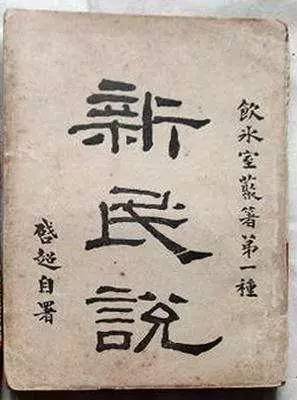 飲冰室叢著第一種
新民說
啓超自署